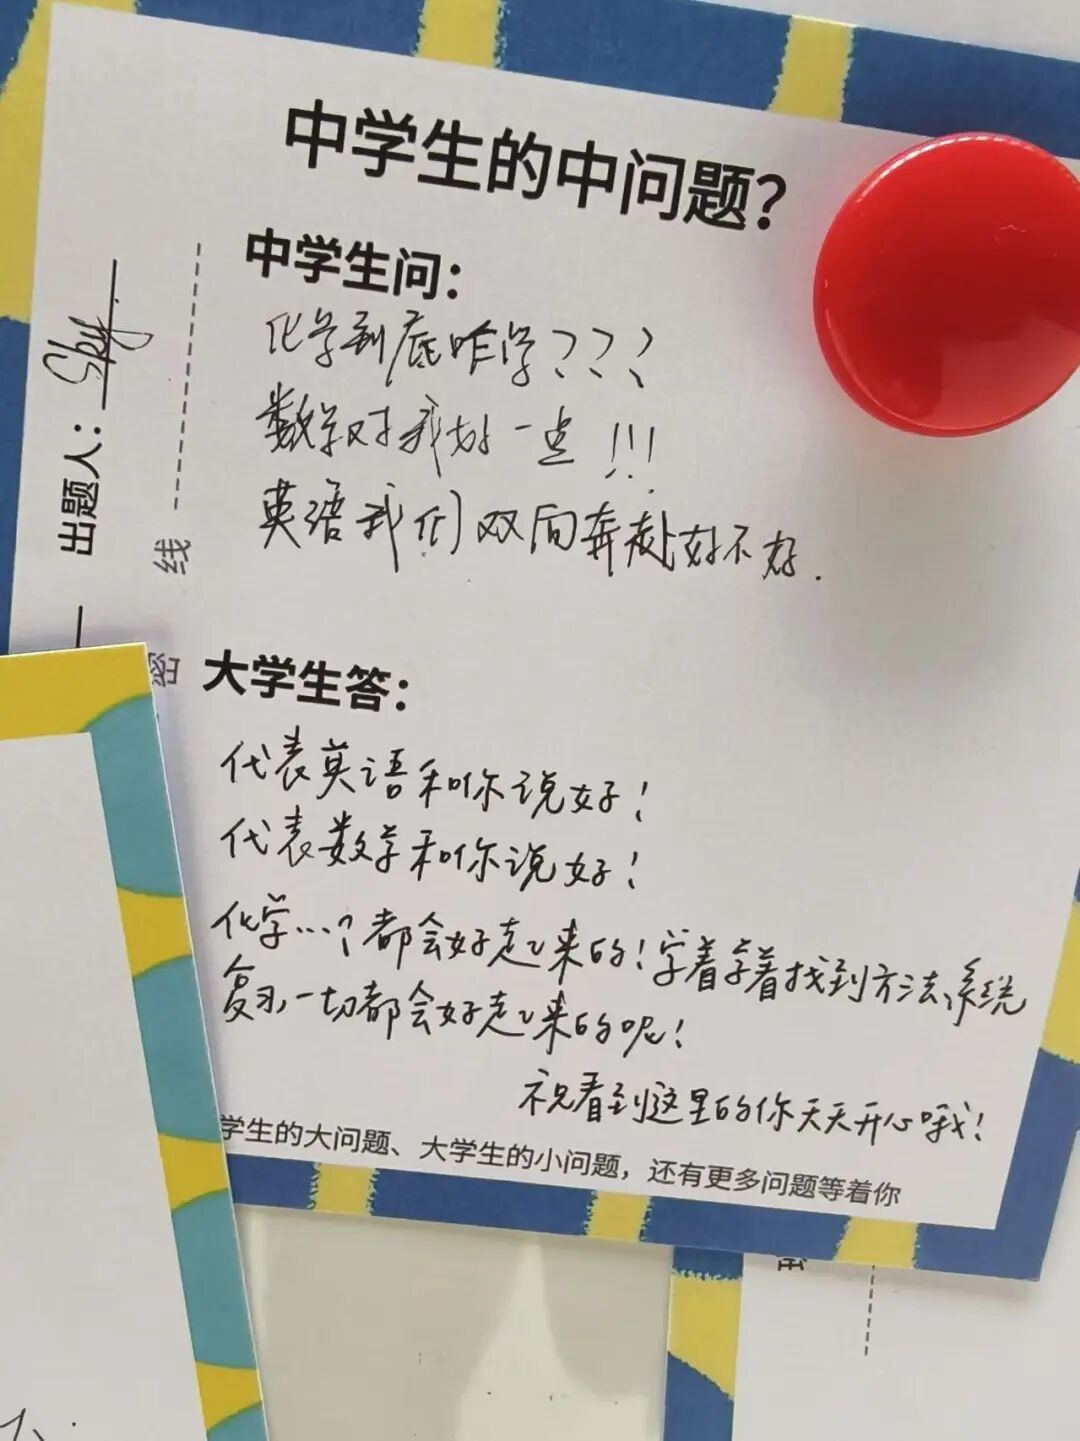 中学生的中问题?
中学生问：
化学到底咋学？？？
数学对我好一点！！！
英语我们双向奔赴好不好.
出题人：Sky
线
密
大学生答：
代表英语和你说好！
代表数学和你说好！
化学…？都会好起来的！学着学着找到方法、系统
复习一切都会好起来的呢！
祝看到这里的你天天开心哦！
学生的大问题、大学生的小问题，还有更多问题等着你